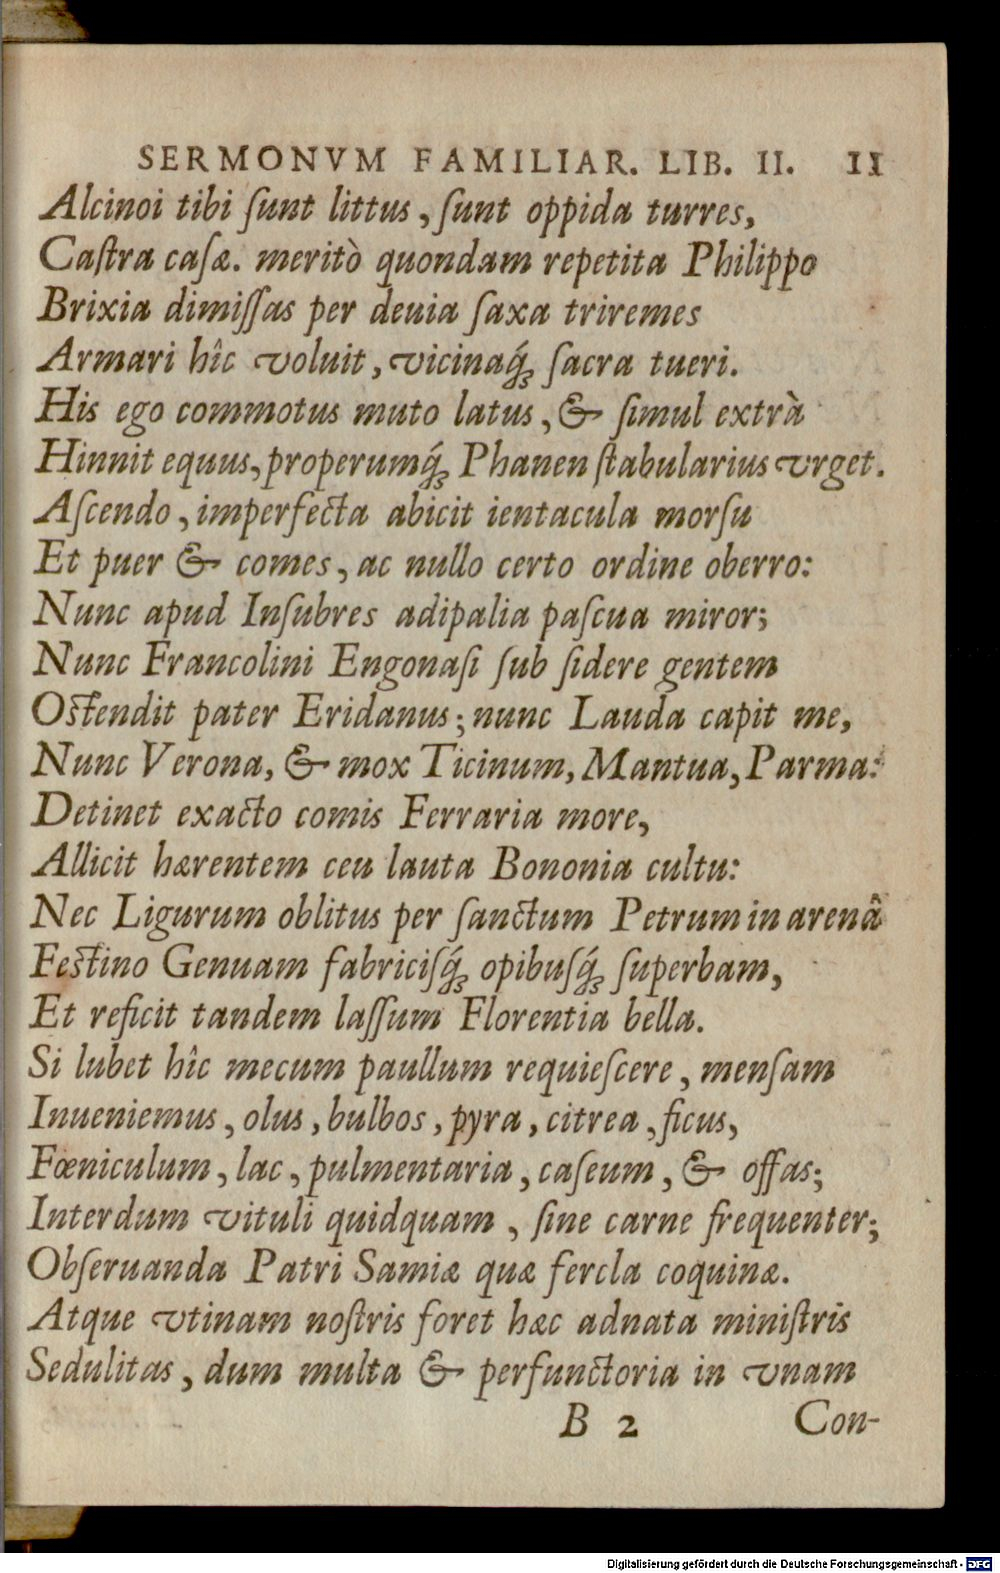 SERMONVM FAMILIAR. LIB. II. 11
Alcinoi tibi ſunt littus, ſunt oppida turres,
Caſtra caſæ. meritò quondam repetita Philippo
Brixia dimiſſas per deuia ſaxa triremes
Armari hîc voluit, vicinaq́; ſacra tueri.
His ego commotus muto latus, & ſimul extrà
Hinnit equus, properumq́; Phanen ſtabularius vrget.
Aſcendo, imperfecta abicit ientacula morſu
Et puer & comes, ac nullo certo ordine oberro:
Nunc apud Inſubres adipalia paſcua miror;
Nunc Francolini Engonaſi ſub ſidere gentem
Oſtendit pater Eridanus; nunc Lauda capit me,
Nunc Verona, & mox Ticinum, Mantua, Parma:
Detinet exacto comis Ferraria more,
Allicit hærentem ceu lauta Bononia cultu:
Nec Ligurum oblitus per ſanctum Petrum in arenâ
Feſtino Genuam fabriciſq́; opibuſq́; ſuperbam,
Et reficit tandem laſſum Florentia bella.
Si lubet hîc mecum paullum requieſcere, menſam
Inueniemus, olus, bulbos, pyra, citrea, ficus,
Fœniculum, lac, pulmentaria, caſeum, & offas;
Interdum vituli quidquam, ſine carne frequenter;
Obſeruanda Patri Samiæ quæ fercla coquinæ.
Atque vtinam noſtris foret hæc adnata miniſtris
Sedulitas, dum multa & perfunctoria in vnam
B 2 Con-
Digitalisierung gefördert durch die Deutsche Forschungsgemeinschaft - DFG